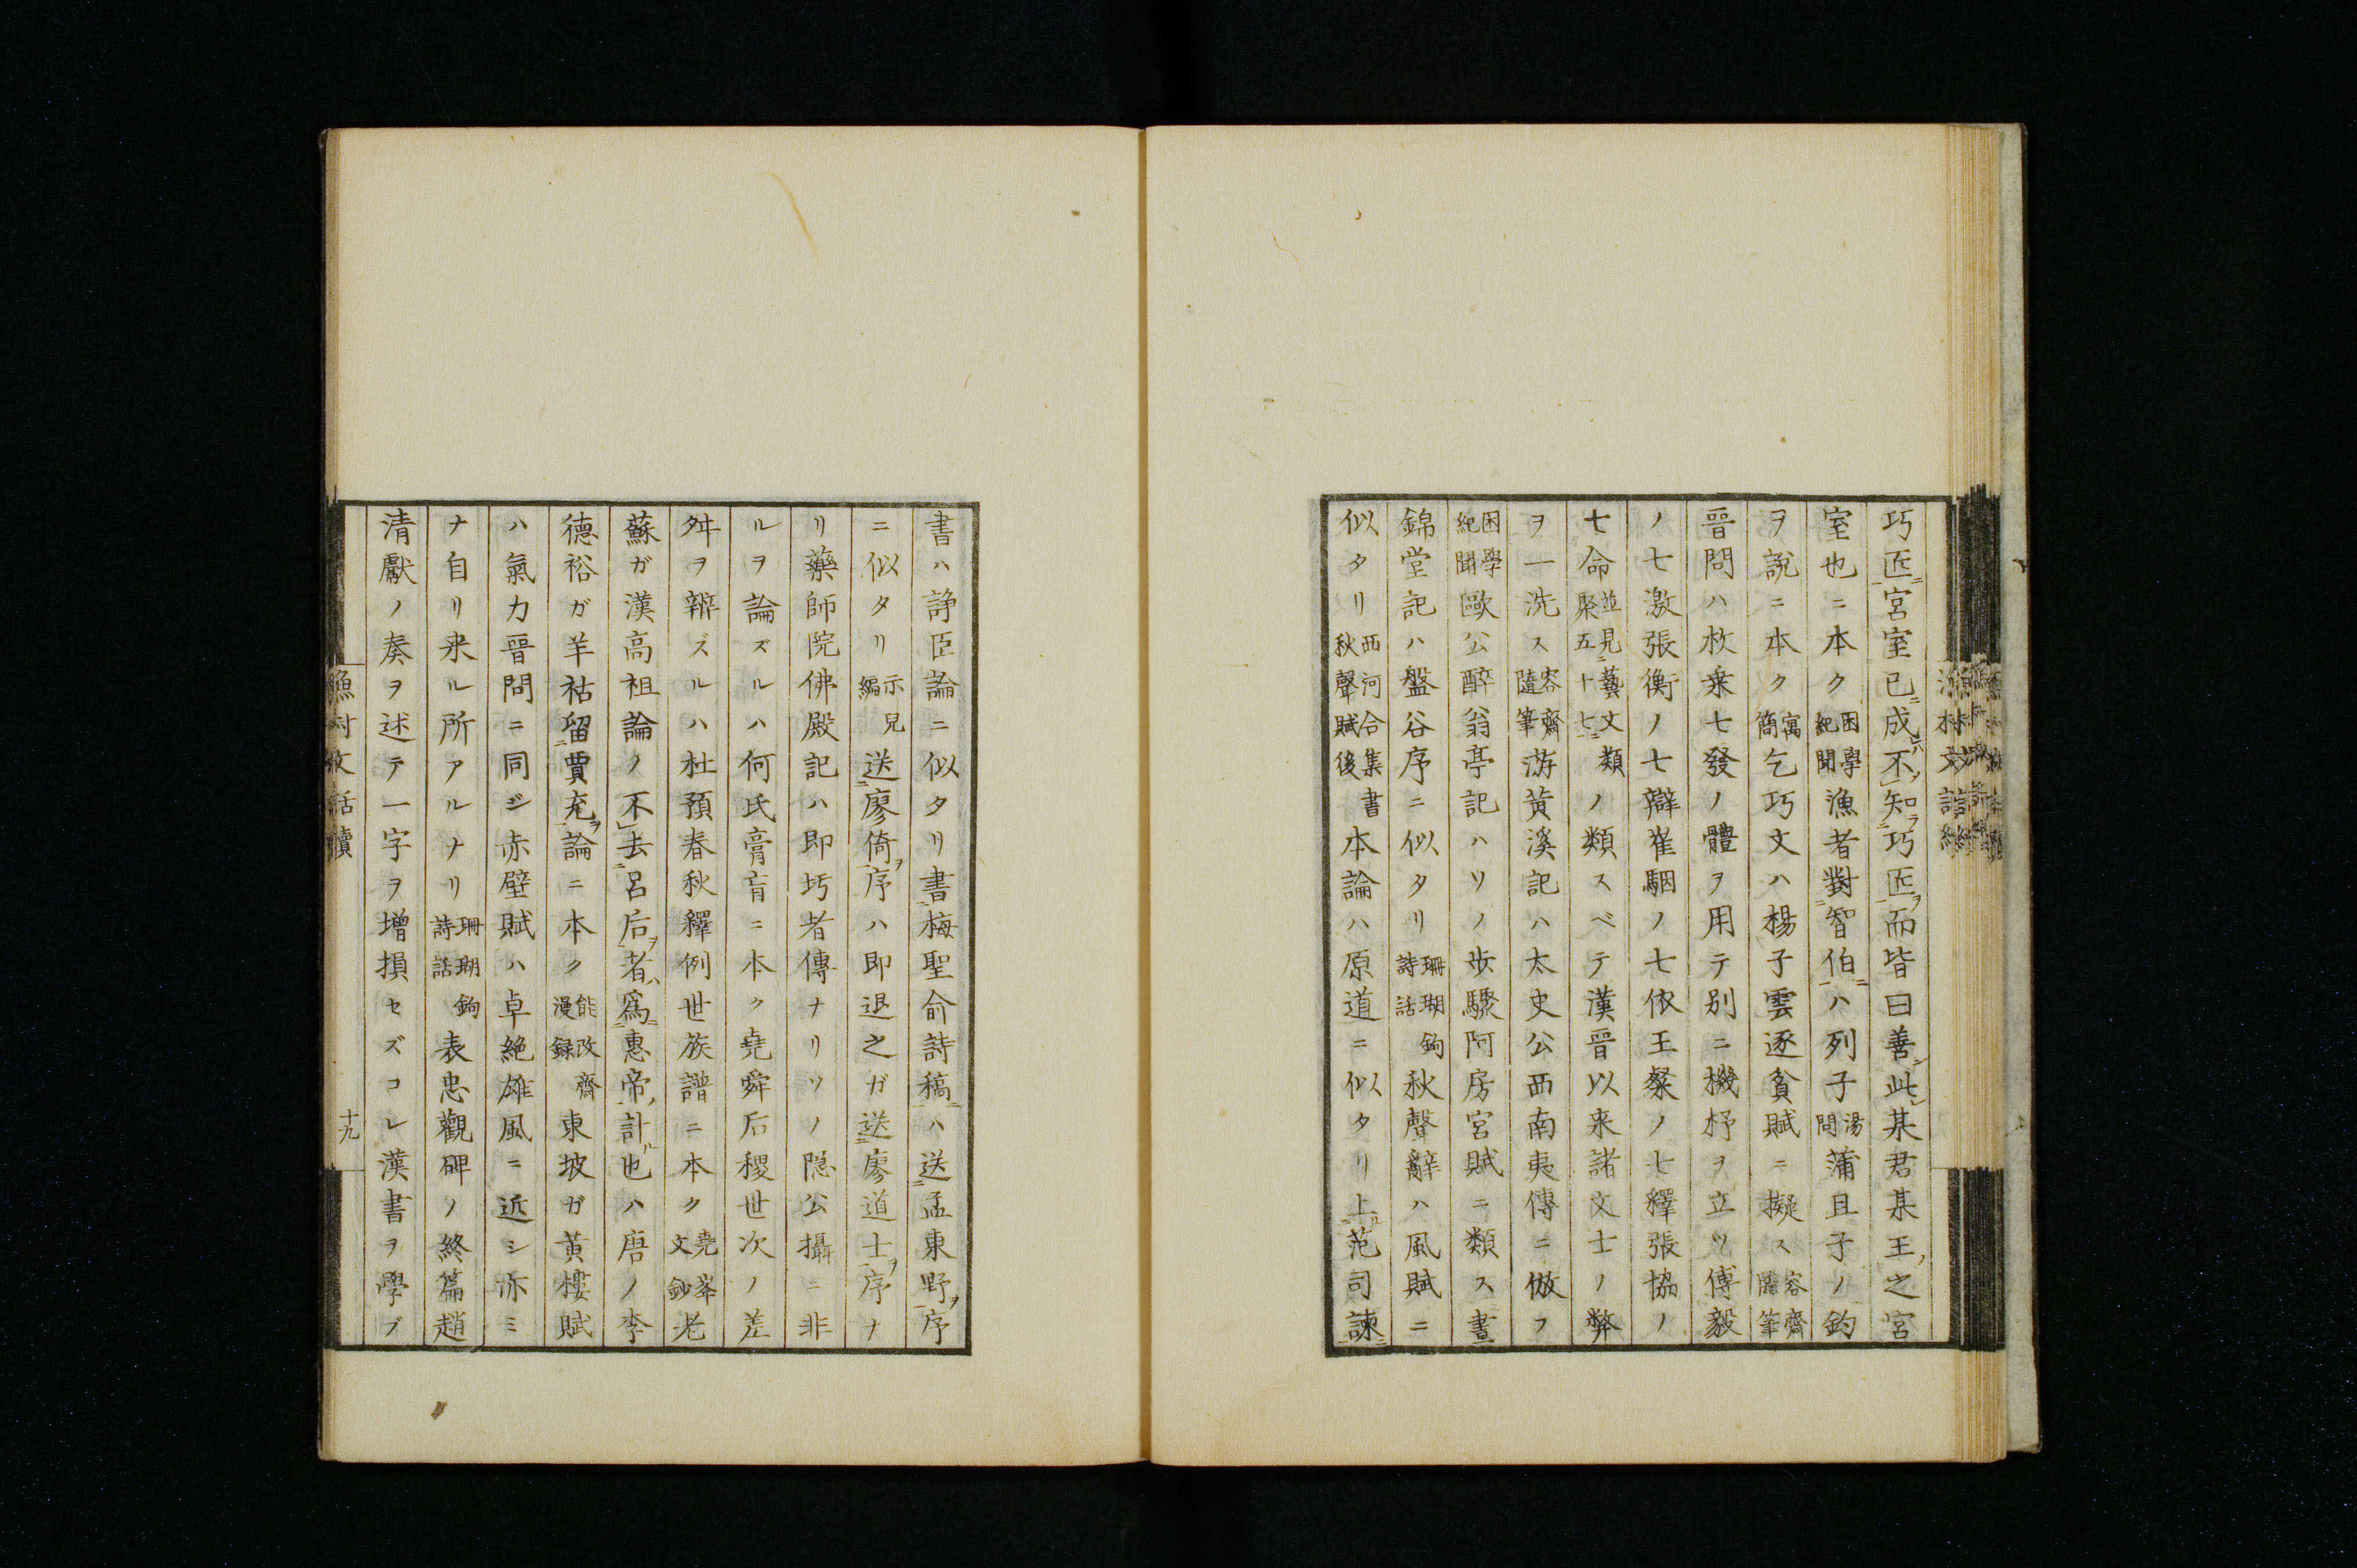 巧匠宮室已成不知巧匠而皆曰善此某君某王之宮
室也ニ本ク困學紀聞漁者對智伯ハ列子湯問蒲且子ノ釣
ヲ説ニ本ク寓簡乞巧文ハ楊子雲逐貧賦ニ擬ス容齋隨筆
晋問ハ枚乗七發ノ體ヲ用テ別ニ機杼ヲ立ツ傅毅
ノ七激張衡ノ七辯崔駰ノ七依王粲ノ七釋張協ノ
七命並見藝文類聚五十七ノ類スベテ漢晋以来諸文士ノ弊
ヲ一洗ス容齋隨筆游黄溪記ハ太史公西南夷傳ニ倣フ
困學紀聞歐公醉翁亭記ハソノ歩驟阿房宮賦ニ類ス晝
錦堂記ハ盤谷序ニ似タリ珊瑚鉤詩話秋聲辭ハ風賦ニ
似タリ西河合集書秋聲賦後本論ハ原道ニ似タリ上范司諫
書ハ諍臣論ニ似タリ書梅聖俞詩稿ハ送孟東野序
ニ似タリ示兒編送廖倚序ハ即退之ガ送廖道士序ナ
リ藥師院佛殿記ハ即圬者傳ナリソノ隠公攝ニ非
ルヲ論ズルハ何氏膏肓ニ本ク堯舜后稷世次ノ差
舛ヲ辨ズルハ杜預春秋釋例世族譜ニ本ク堯峯文鈔老
蘇ガ漢高祖論ノ不去呂后者爲惠帝計也ハ唐ノ李
德裕ガ羊祜留賈充論ニ本ク能改齋漫録東坡ガ黄樓賦
ハ氣力晋問ニ同ジ赤壁賦ハ卓絶雄風ニ近シ亦ミ
ナ自リ来ル所アルナリ珊瑚鉤詩話表忠觀碑ノ終篇趙
清獻ノ奏ヲ述テ一字ヲ增損セズコレ漢書ヲ學ブ
漁村文話續
十九